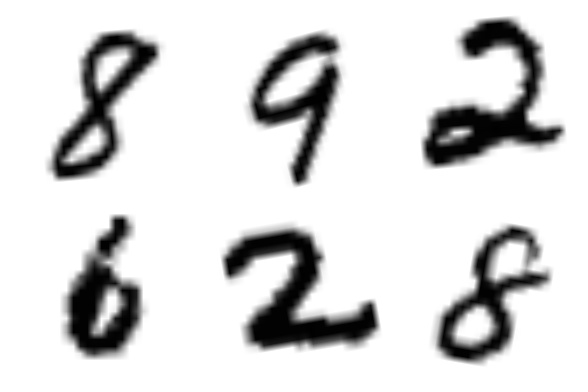 8 9 2
6 2 8